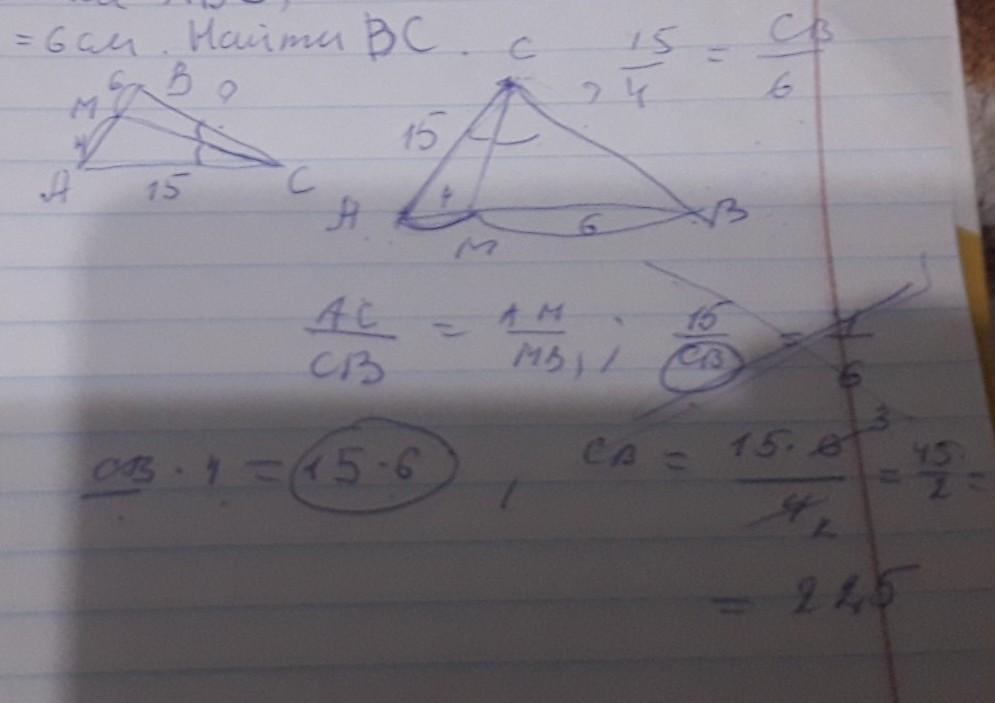 = 6 см. Найти BC.
15/4 = CB/6
M 6 B ?
A 15 C
C
15
A 4 M 6 B
AC/CB = AM/MB ; 15/CB = 4/6
CB · 4 = 15 · 6 , CB = 15 · 6 3 / 4 2 = 45/2 =
= 22,5